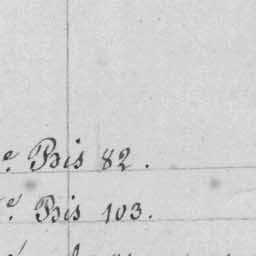 e. Bis 82.
e. Bis 103.